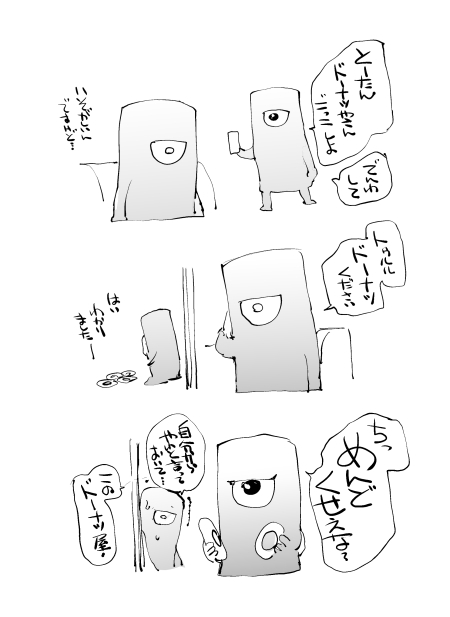 とーたん
ドーナツやさん
ごっこしよ
でんわ
して
いそがしいん
ですけど…
トゥルル
ドーナツ
ください
はい
わかり
ました—
ちっ
めんど
くせえな〜
自分から
やろと言って
おいて…
この
ドーナツ屋!